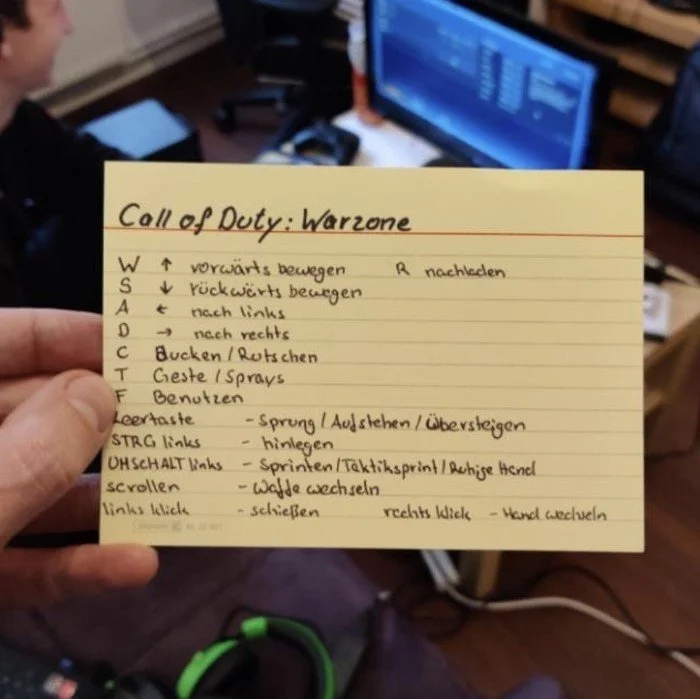 Call of Duty: Warzone
W ↑ vorwärts bewegen R nachladen
S ↓ rückwärts bewegen
A ← nach links
D → nach rechts
C Bucken / Rutschen
T Geste / Sprays
F Benutzen
Leertaste - Sprung / Aufstehen / Übersteigen
STRG links - hinlegen
UMSCHALT links - Sprinten / Taktiksprint / Ruhige Hand
scrollen - Waffe wechseln
links klick - schießen rechts klick - Hand wechseln